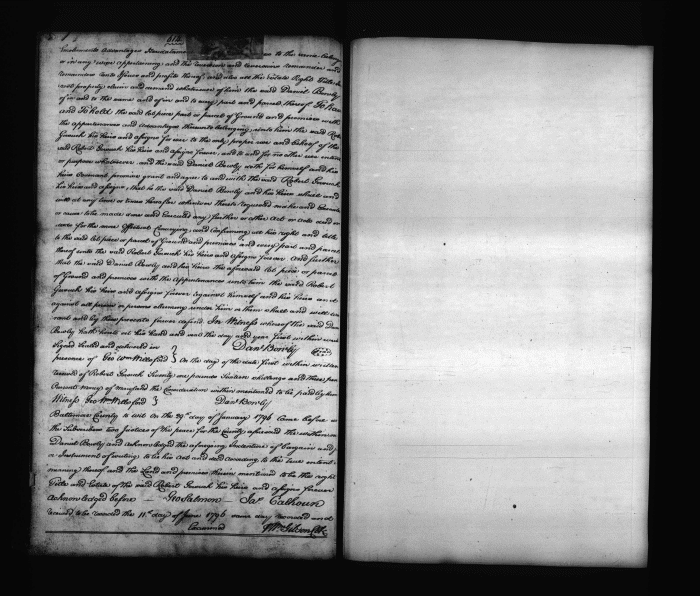 614
Emoluments Advantages to the same belong
or in any wise appertaining and the reversion and reversions remainder and
remainders rents Issues and profits thereof and also all the Estate Right Title
property claim and demand whatsoever of him the said Daniel Bowly
of in and to the same and of in and to every part and parcel thereof To have
and To hold the said lot piece part or parcel of Ground and premises with
the appurtenances and Advantages thereunto belonging unto him the said Robt
his heirs and assigns for ever to the only proper use and behoof of the
said Robert his heirs and assigns forever and to and for no other use intent
or purpose whatsoever and the said Daniel Bowly for himself and his
heirs Covenant promise grant and agree to and with the said Robert
his heirs and assigns, that he the said Daniel Bowly and his heirs shall and
will at any time or times hereafter when thereto requested make and Execute
or cause to be made and Executed any further or other Act or Acts deed or
for the more Efficient Conveying and Confirming all his right and title
to the said lot piece or parcel of Ground and premises and every part and parcel
thereof unto the said Robert his heirs and assigns forever And further
that the said Daniel Bowly and his heirs the aforesaid lot piece or parcel
of Ground and premises with the Appurtenances unto him the said Robert
his heirs and assigns forever against himself and his heirs and
against all person or persons claiming under him or them shall and will
and by these presents forever defend. In Witness whereof the said Dan
Bowly hath hereto set his hand and seal the day and year first within
Signed Sealed and delivered in Danl Bowly
presence of Geo Wm On the day of the date first within written
received of Robert Seventy one pounds Sixteen shillings and three pen
Current money of Maryland the Consideration within mentioned to be paid by him
Witness Geo Wm Danl Bowly
Baltimore County to wit On the 29th day of January 1796 Came before us
the Subscribers two Justices of the peace for the County aforesaid the within
Daniel Bowly and Acknowledged the aforegoing Instrument of
or Instrument of writing to be his Act and deed according to the true intent
meaning thereof and the Land and premises therein mentioned to be the right
Title and Estate of the said Robert his heirs and assigns forever
Acknowledged before Geo Salmon Jas. Calhoun
to be recorded the 11th day of June 1796 same day recorded and
Examined Wm Gibson Clk